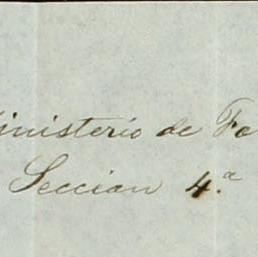 inisterio de Fo
Seccion 4.a